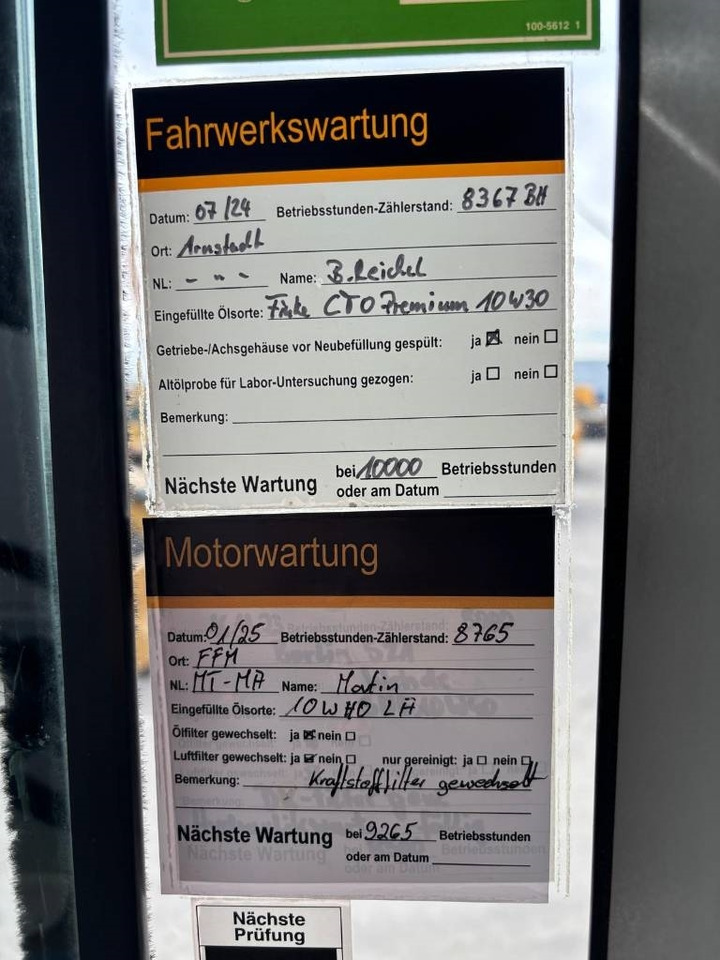 100-5612 1
Fahrwerkswartung
Datum: 07/24 Betriebsstunden-Zählerstand: 8367 BH
Ort: Arnstadt
NL: - " - Name: B. Reichel
Eingefüllte Ölsorte: CTO Premium 10W30
Getriebe-/Achsgehäuse vor Neubefüllung gespült: ja ☒ nein ☐
Altölprobe für Labor-Untersuchung gezogen: ja ☐ nein ☐
Bemerkung:
Nächste Wartung bei 10000 Betriebsstunden
oder am Datum
Motorwartung
Datum: 01/25 Betriebsstunden-Zählerstand: 8765
Ort: FFM
NL: MT-MA Name: Martin
Eingefüllte Ölsorte: 10W40 LA
Ölfilter gewechselt: ja ☒ nein ☐
Luftfilter gewechselt: ja ☒ nein ☐ nur gereinigt: ja ☐ nein ☐
Bemerkung: Kraftstofffilter gewechselt
Nächste Wartung bei 9265 Betriebsstunden
oder am Datum
Nächste
Prüfung